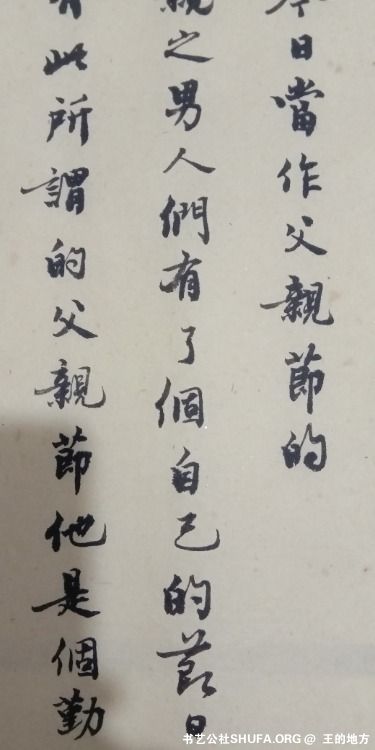 今日噹作父親節的
親之男人們有了個自己的節日
有此所謂的父親節他是個勤
书艺公社SHUFA.ORG @ 王的地方